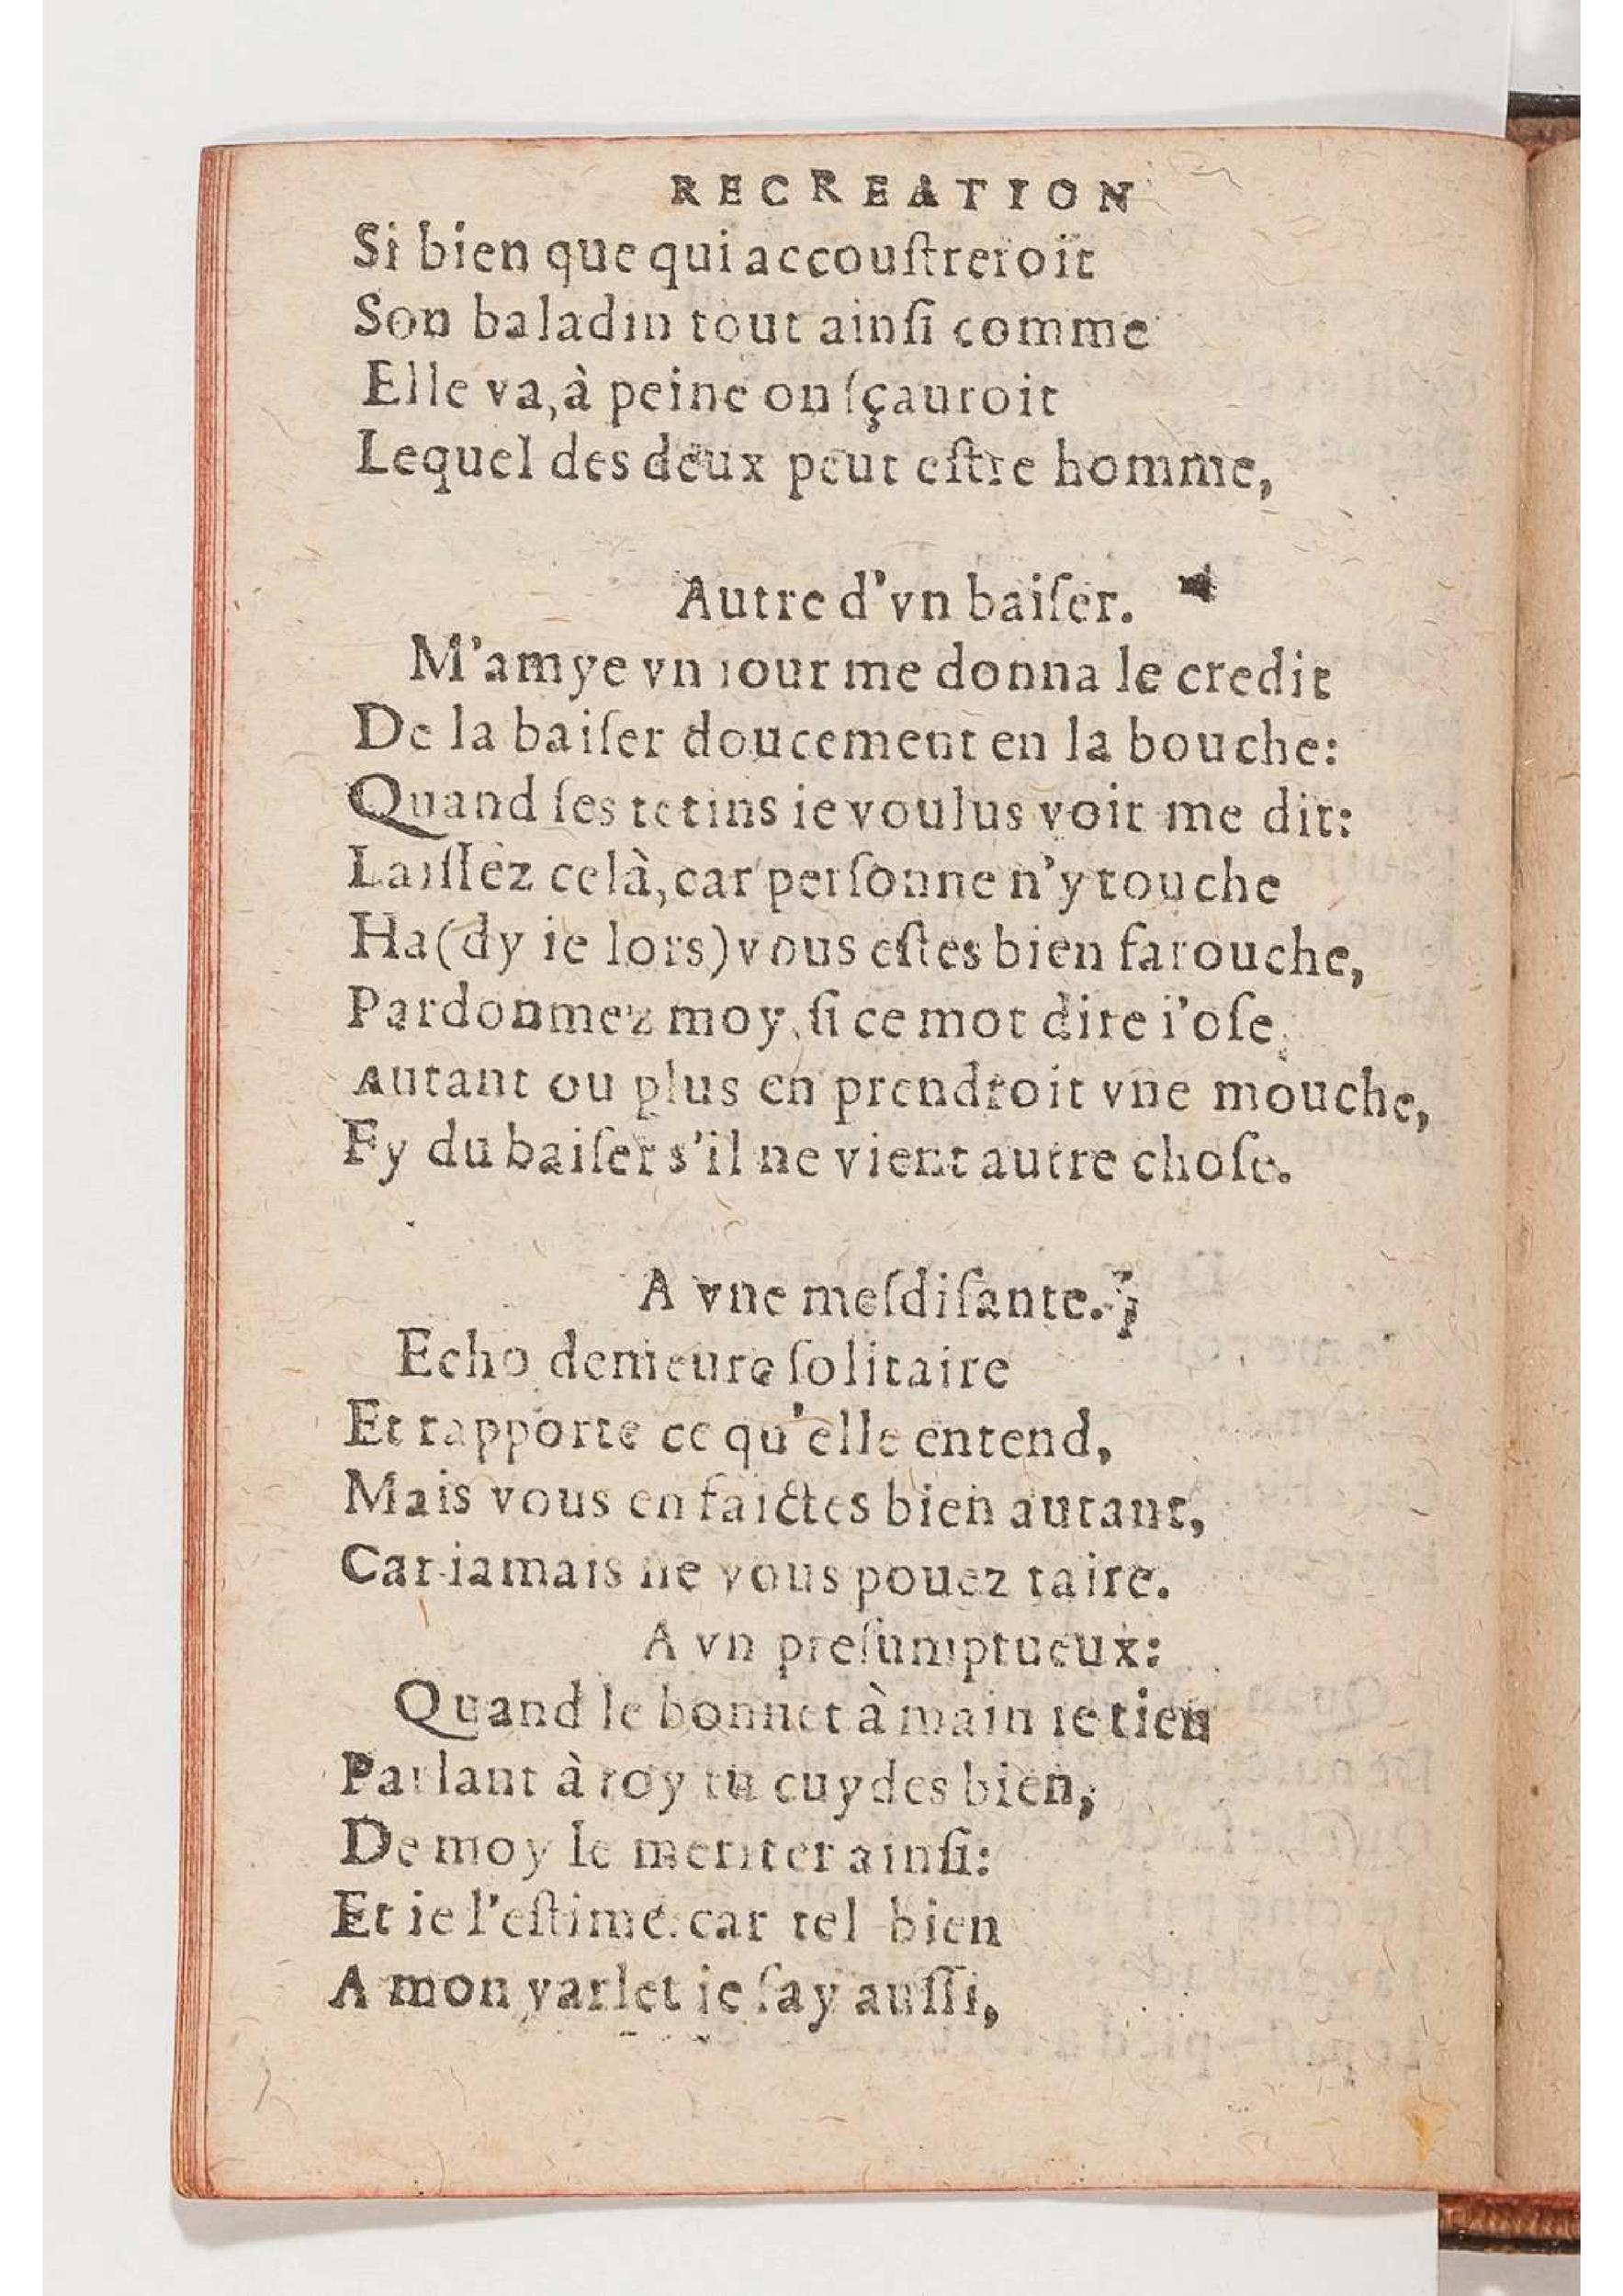 RECREATION
Si bien que qui accouſtreroit
Son baladin tout ainſi comme
Elle va, à peine on ſçauroit
Lequel des deux peut eſtre homme,
Autre d'vn baiſer.
M'amye vn iour me donna le credit
De la baiſer doucement en la bouche:
Quand ſes tetins ie voulus voir me dit:
Laiſſez celà, car perſonne n'y touche
Ha (dy ie lors) vous eſtes bien farouche,
Pardonmez moy, ſi ce mot dire i'oſe,
Autant ou plus en prendroit vne mouche,
Fy du baiſer s'il ne vient autre choſe.
A vne meſdiſante.
Echo demeure ſolitaire
Et rapporte ce qu'elle entend,
Mais vous en faictes bien autant,
Car iamais ne vous pouez taire.
A vn preſumptueux:
Quand le bonnet à main ie tien
Parlant à toy tu cuydes bien,
De moy le meriter ainſi:
Et ie l'eſtime: car tel bien
A mon varlet ie fay auſſi,